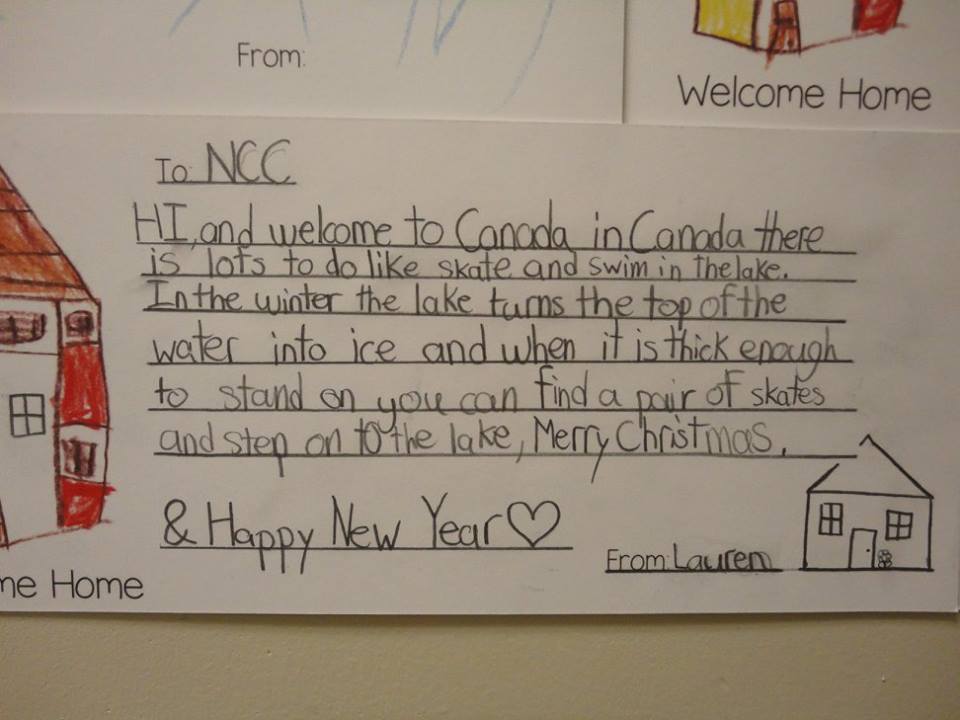 From:
Welcome Home
To: NCC
HI, and welcome to Canada in Canada there
is lots to do like skate and swim in the lake.
In the winter the lake turns the top of the
water into ice and when it is thick enough
to stand on you can find a pair of skates
and step on to the lake, Merry Christmas,
& Happy New Year♡
From: Lauren
me Home